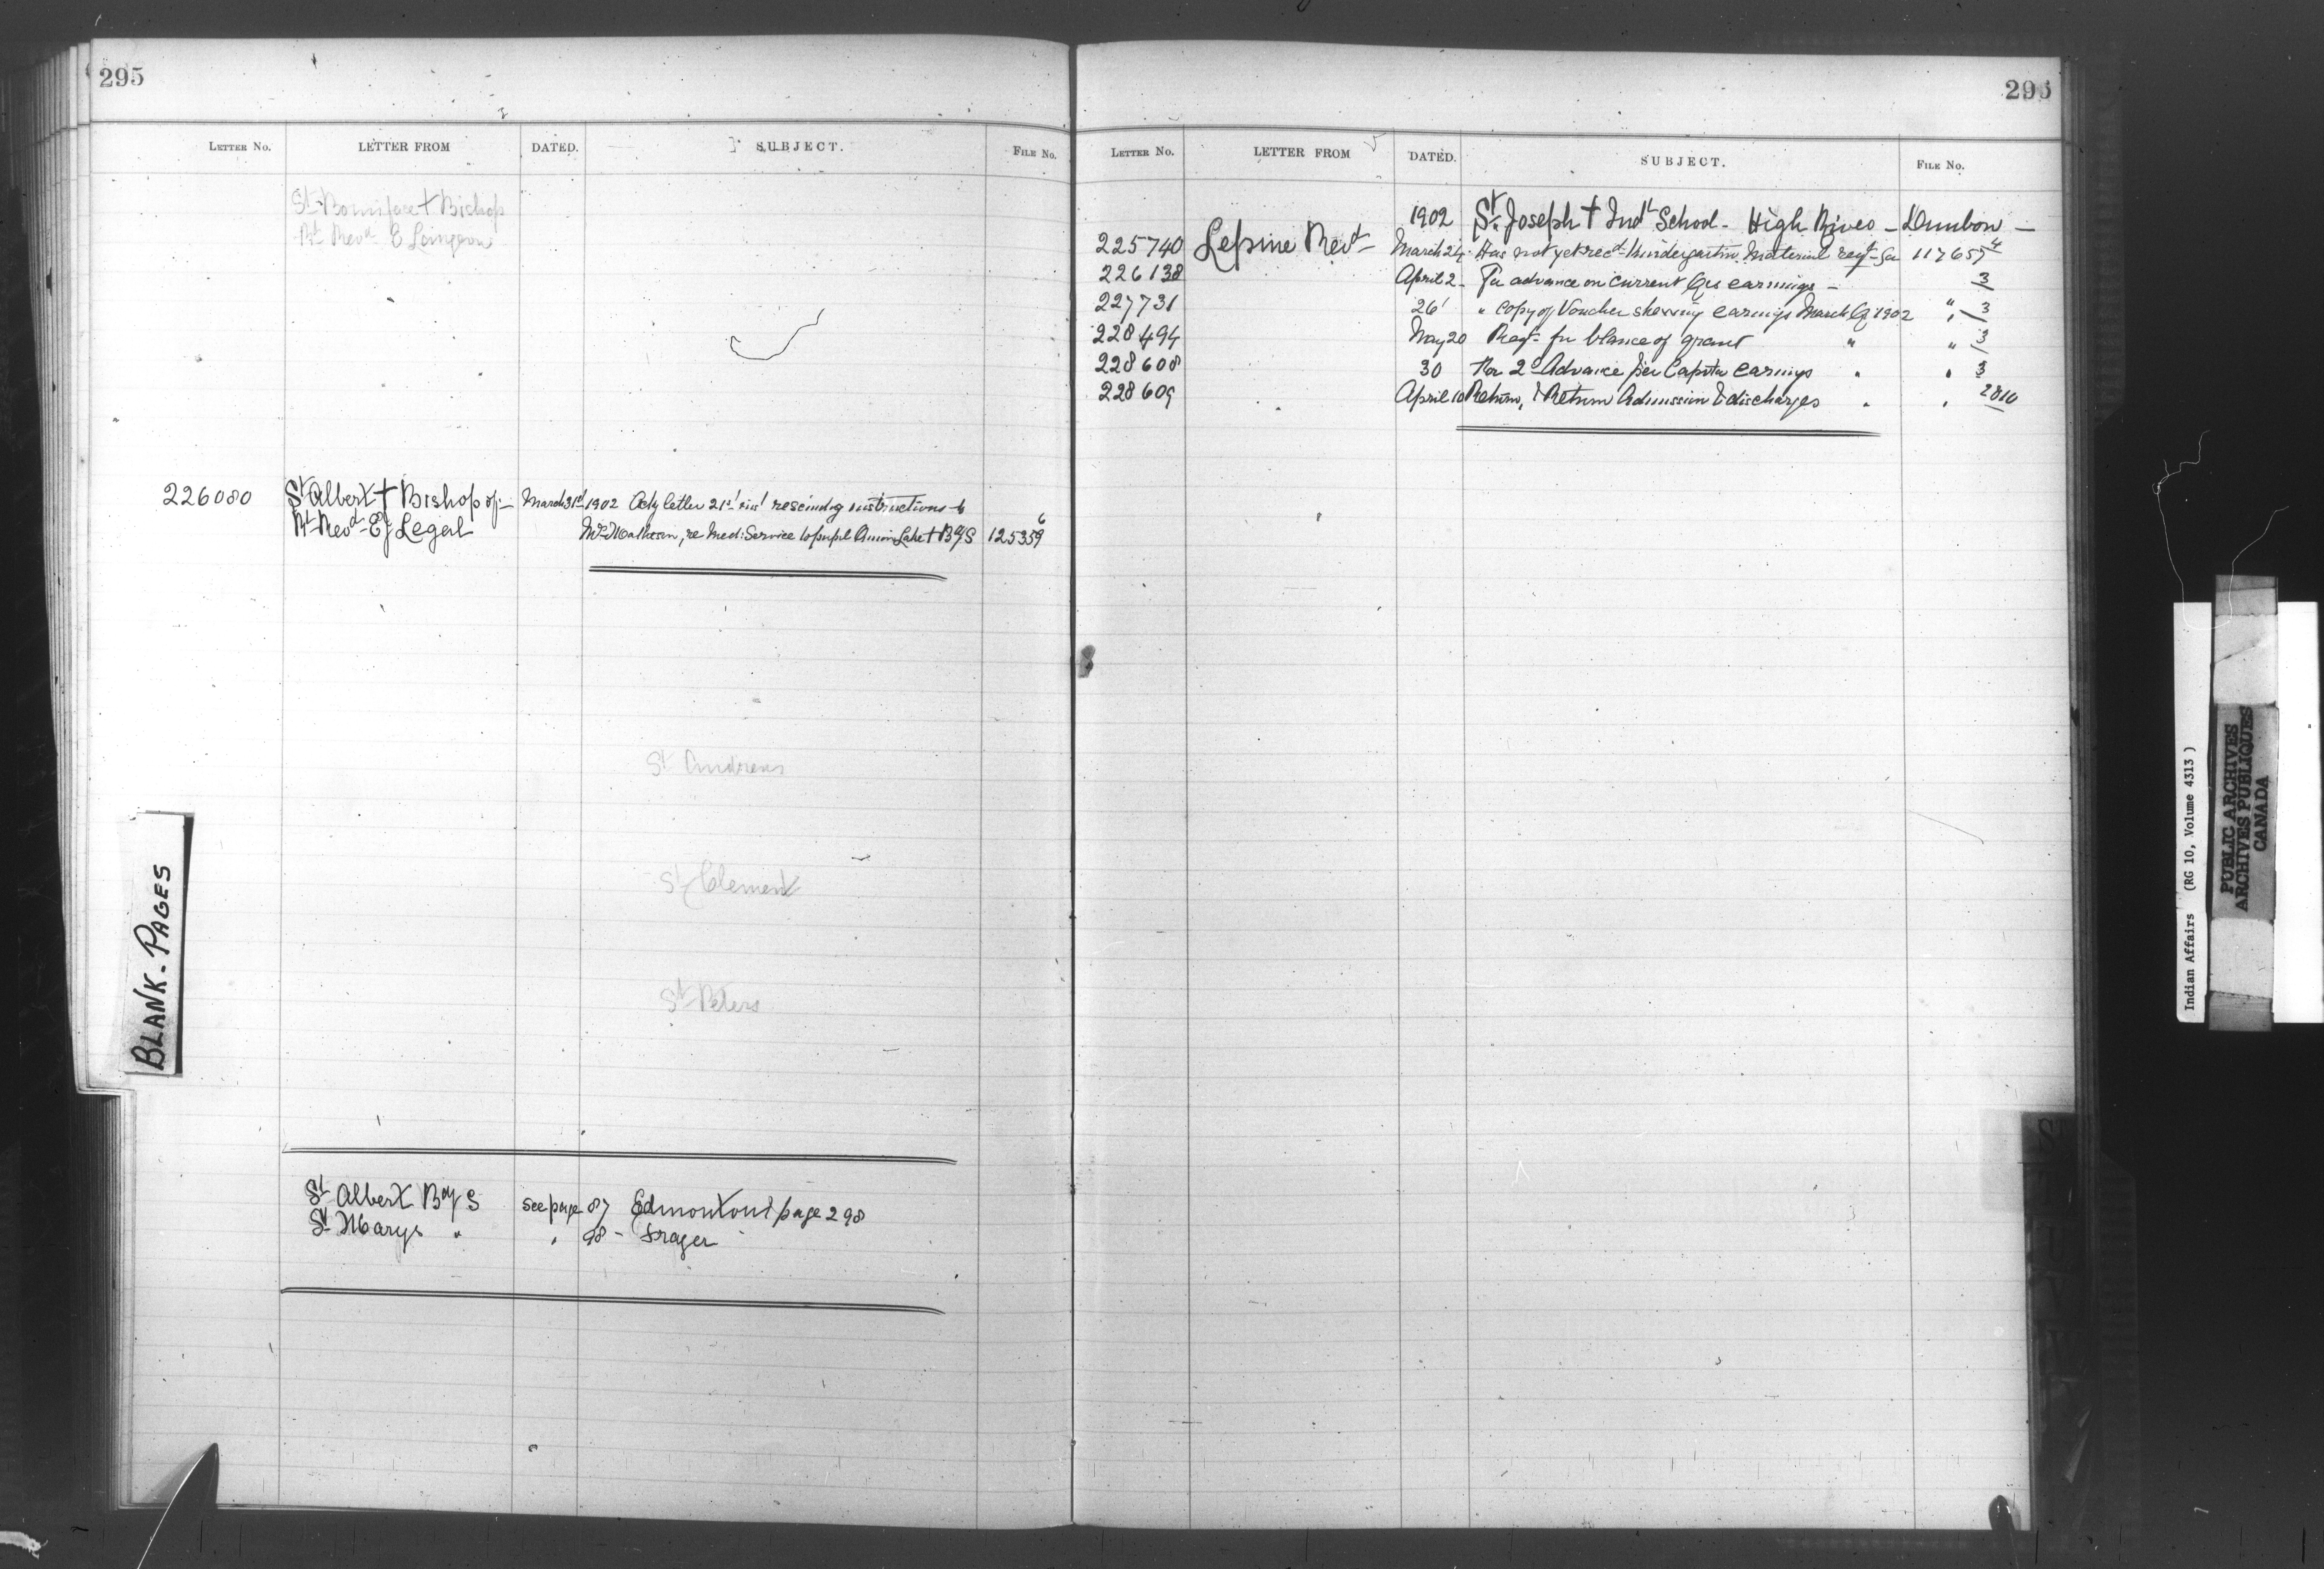 295
LETTER No. LETTER FROM DATED. SUBJECT. FILE No.
St Boniface † Bishop
Rt Revd E Langevin
226080 St Albert † Bishop of — March 31st 1902 Ackg letter 21st inst rescindg instructions to
Rt Revd EJ Legal Mr Matheson, re Med: Service to pupil Onion Lake † BgS 125359 6
St Andrews
St Clement
St Peters
BLANK-PAGES
St Albert Bdg S see page 87 Edmonton & page 298
St Marys " " 98 - Fraser
296
LETTER No. LETTER FROM DATED. SUBJECT. FILE No.
1902 St Joseph † Indl School - High River - Dunbow -
225740 Lepine Revd March 24 Has not yet recd Kindergarten Material reqd 117657 4
226138 April 2 For advance on current Qrs earnings - 3
227731 26 " copy of Voucher shewing earnings March Qr 1902 " 3
228494 May 20 Reqt for blance of grant " " 3
228608 30 For 2d Advance per Capita earnings " " 3
228609 April 10 Return, Return Admission & discharges " " 2810
Indian Affairs (RG 10, Volume 4313)
PUBLIC ARCHIVES
ARCHIVES PUBLIQUES
CANADA